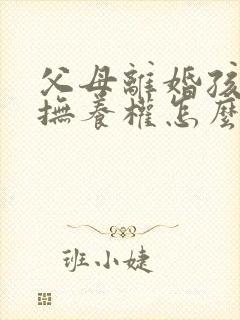 父母離婚孩
撫養權怎麼
班小婕